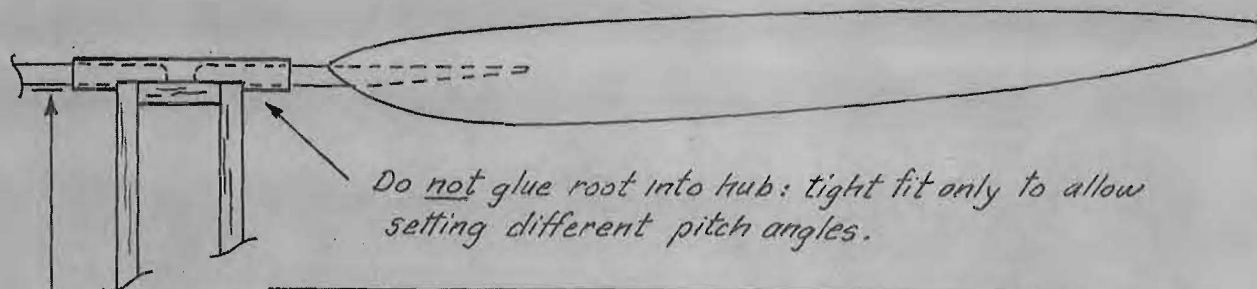 Do not glue root into hub: tight fit only to allow
setting different pitch angles.